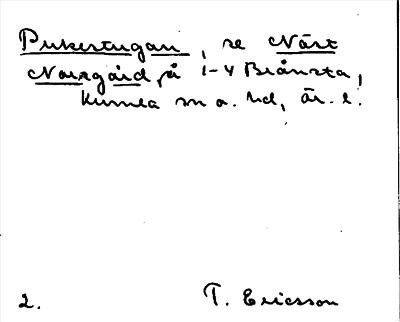 Pukerstugan, se Näst
Norrgård på 1-4 Brånsta,
Kumla sn o. hd, är. l.
2. T. Ericsson